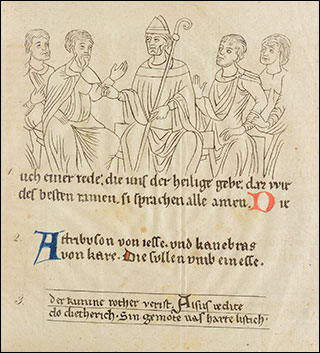 1. uch einer rede, die uns der heilige gebe, daz wir
des besten ramen, si sprachen alle amen. Die
2. Attribuson von iesse. und kanebras
von kare. Die sullen umb ein esse.
3. der kuninc rother verist, Aisus redite
do dietherich. Sin gemote was harte listich.